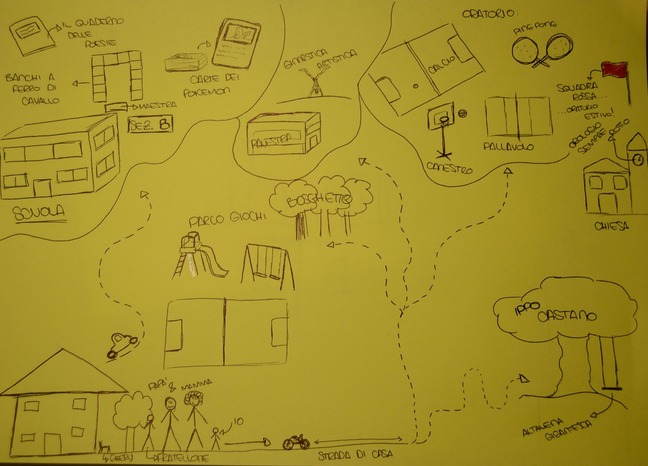 IL QUADERNO
DELLE
POESIE
BANCHI A
FERRO DI
CAVALLO
MAESTRA
SEZ. B
CARTE DEI
POKEMON
SCUOLA
GINNASTICA
ARTISTICA
PALESTRA
ORATORIO
CALCIO
PING PONG
CANESTRO
PALLAVOLO
SQUADRA
ROSSA...
...ORATORIO
ESTIVO!
OROLOGIO
SEMPRE ROTTO
CHIESA
BOSCHETTO
PARCO GIOCHI
IPPO
CASTANO
ALTALENA
GIGANTESCA
PAPA' & MAMMA
IO
FRATELLONE
STRADA DI CASA